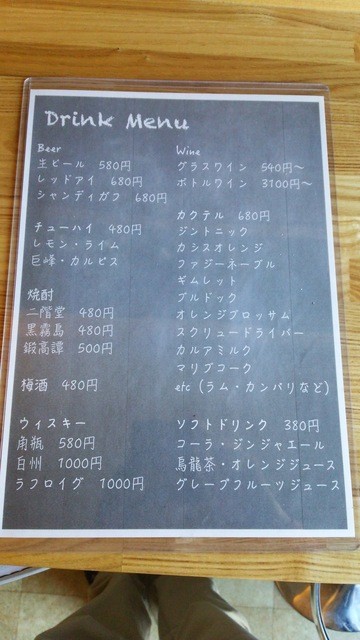 Drink Menu
Beer
生ビール 580円
レッドアイ 680円
シャンディガフ 680円
チューハイ 480円
レモン・ライム
巨峰・カルピス
焼酎
二階堂 480円
黒霧島 480円
鍛高譚 500円
梅酒 480円
ウィスキー
角瓶 580円
白州 1000円
ラフロイグ 1000円
Wine
グラスワイン 540円〜
ボトルワイン 3100円〜
カクテル 680円
ジントニック
カシスオレンジ
ファジーネーブル
ギムレット
ブルドック
オレンジブロッサム
スクリュードライバー
カルアミルク
マリブコーク
etc (ラム・カンパリなど)
ソフトドリンク 380円
コーラ・ジンジャエール
烏龍茶・オレンジジュース
グレープフルーツジュース